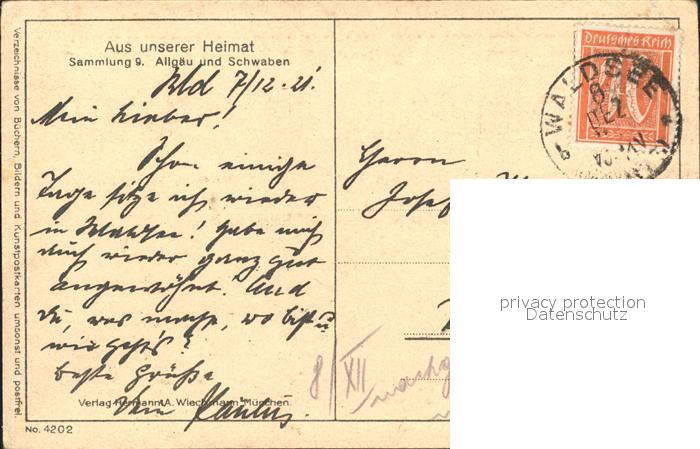 Aus unserer Heimat
Sammlung 9. Allgäu und Schwaben
Wld 7/12.21.
Mein Lieber!
Schon einige
Tage sitze ich wieder
in Waldsee! Habe mich
auch wieder ganz gut
angewöhnt. Und
Du, was machst, wo bist u
wie gehts?
Beste Grüße
Dein Paulus.
Verlag Hermann A. Wiechmann München.
No. 4202
Verzeichnisse von Büchern, Bildern und Kunstpostkarten umsonst und postfrei.
Deutsches Reich
WALDSEE
8 DEZ
Herrn
Josef
8/XII
privacy protection
Datenschutz